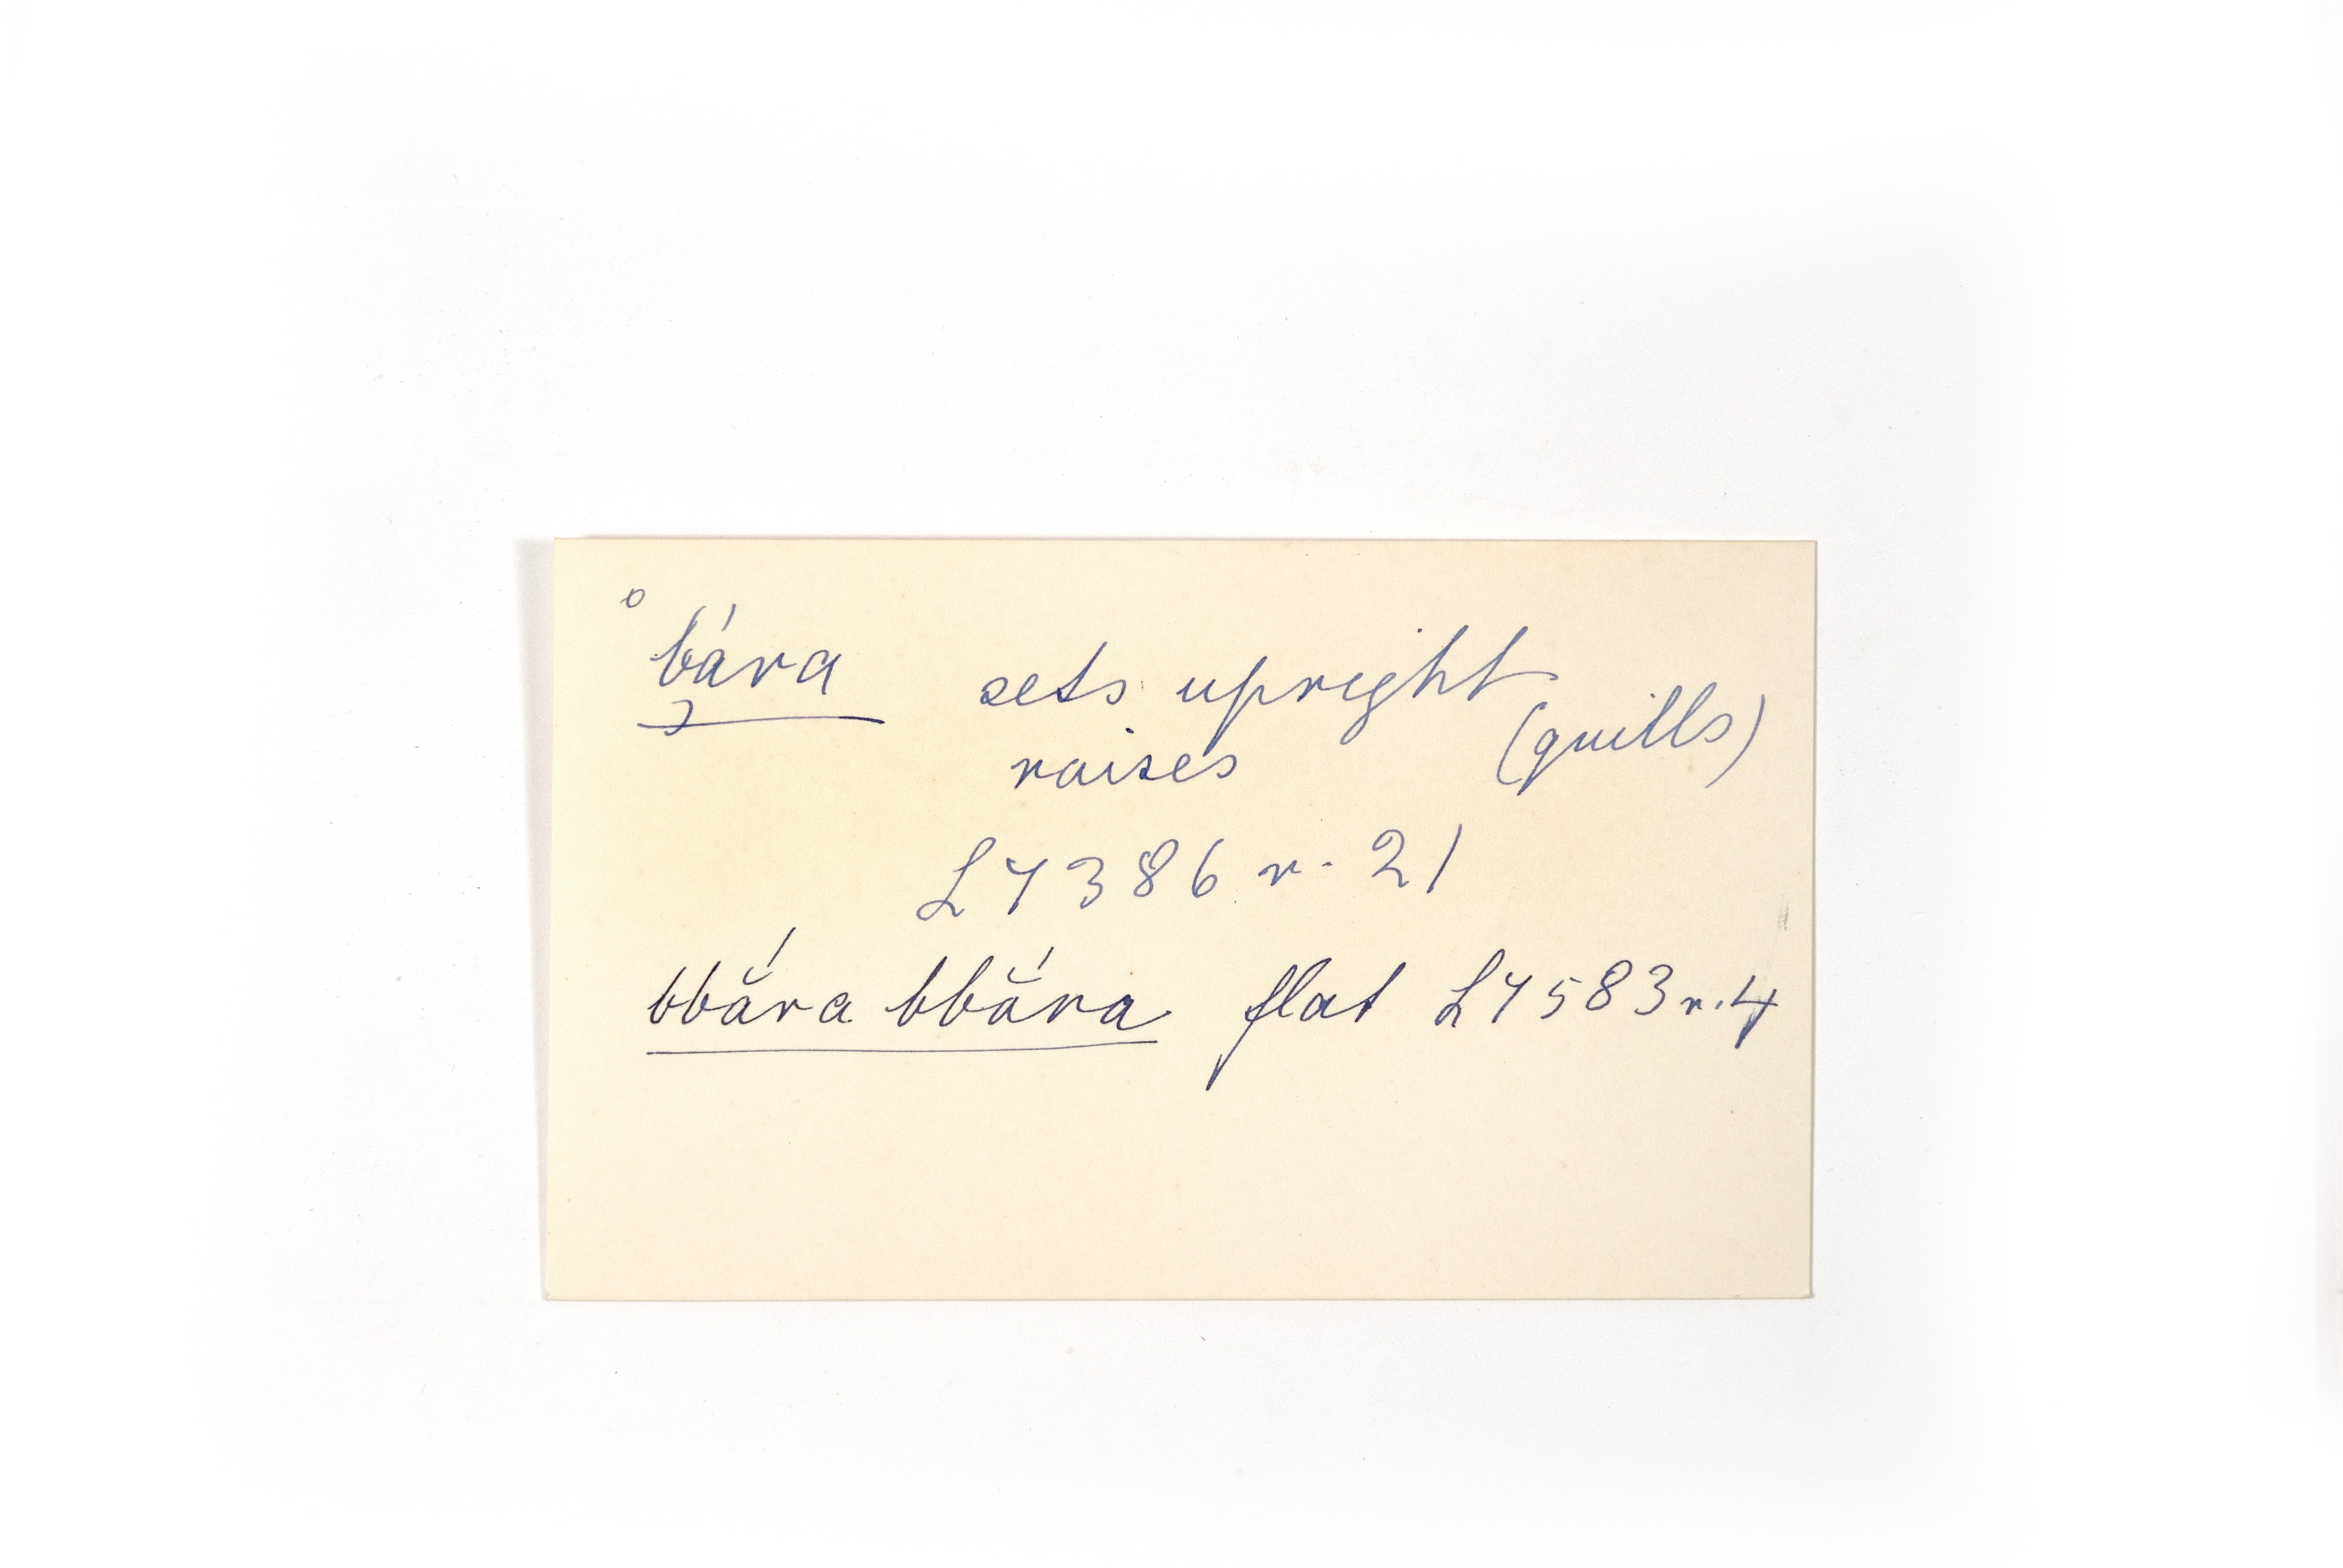 o
bára sets upright
raises (quills)
L7386 r. 21
bbā̆́ra bbā̆́ra flat L7583 r.4